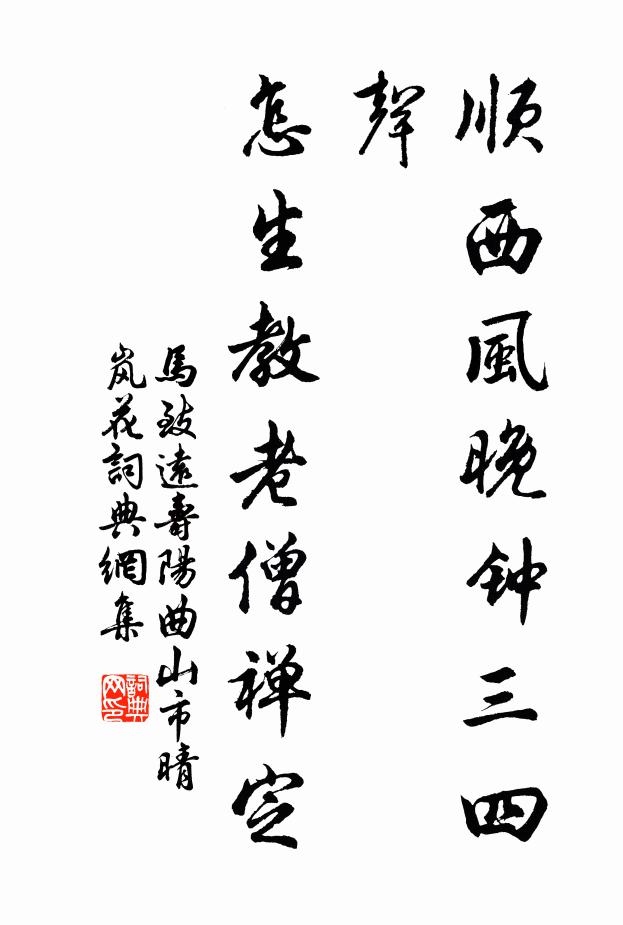 順西風晚钟三四
聲
怎生教老僧禅定
馬致遠壽陽曲山市晴
岚花詞典網集
詞典
网印